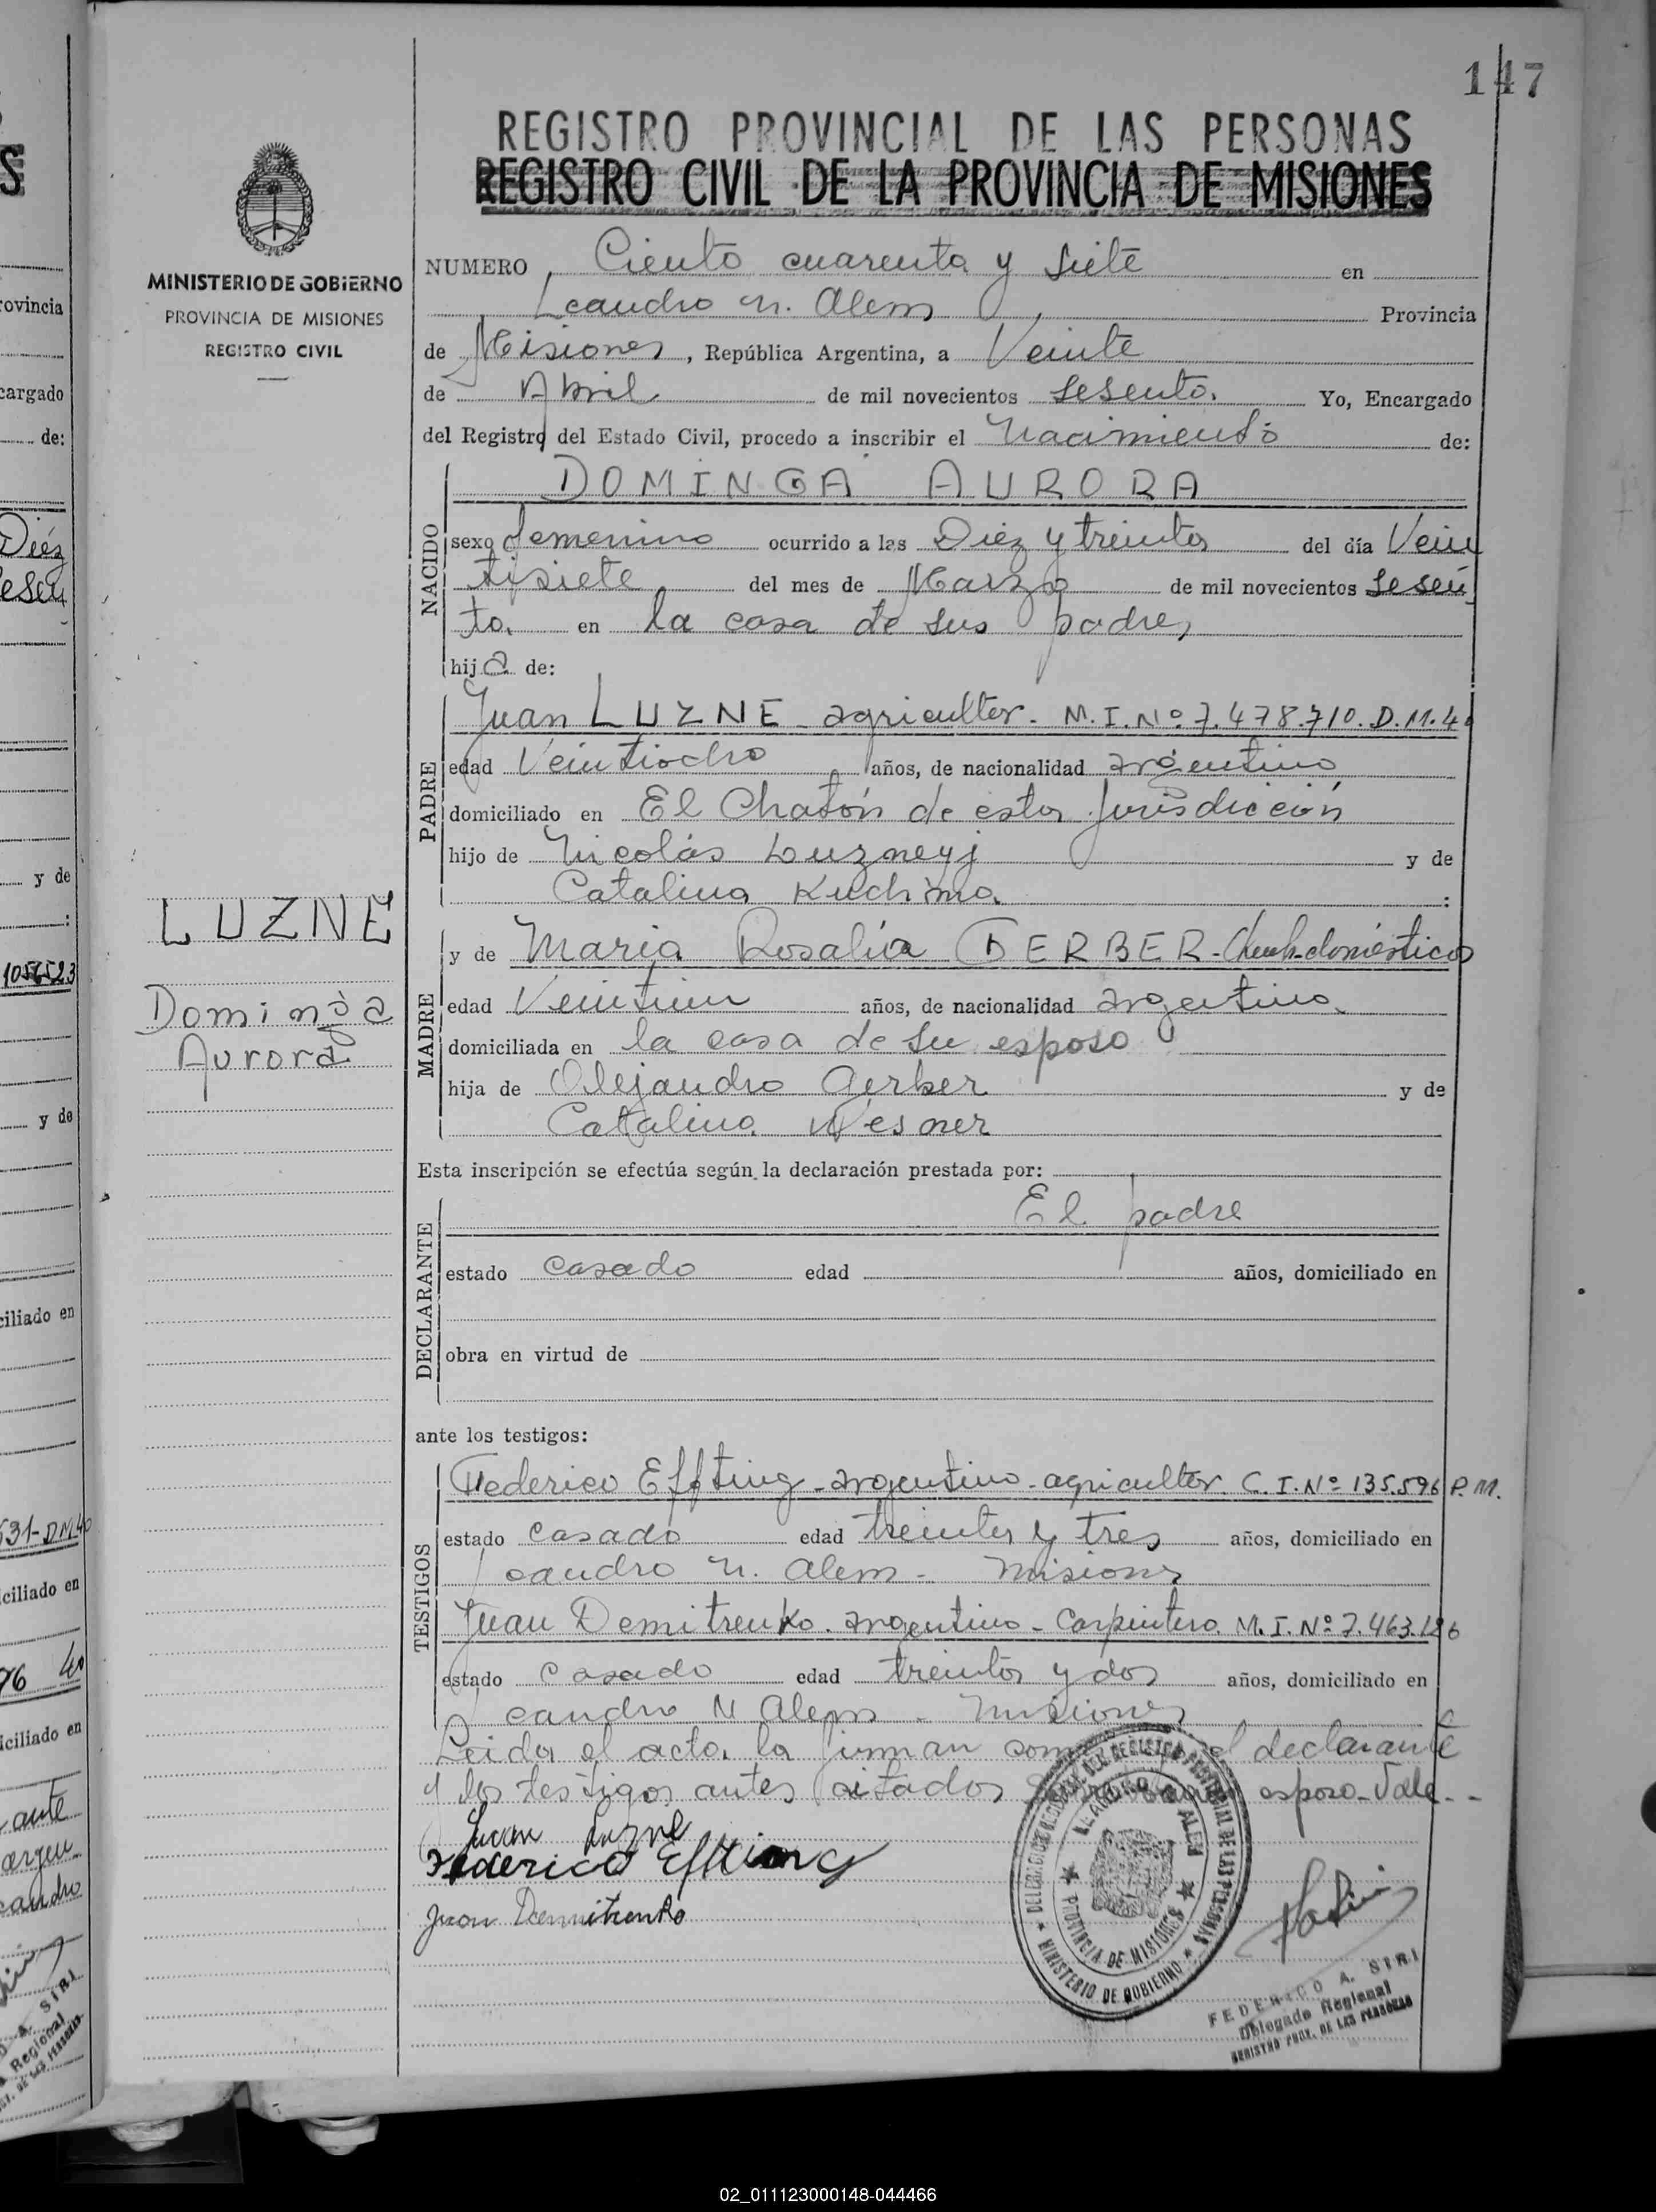 147
REGISTRO PROVINCIAL DE LAS PERSONAS
REGISTRO CIVIL DE LA PROVINCIA DE MISIONES
MINISTERIO DE GOBIERNO
PROVINCIA DE MISIONES
REGISTRO CIVIL
NUMERO Ciento cuarenta y siete en
Leandro N. Alem Provincia
de Misiones, República Argentina, a Veinte
de Abril de mil novecientos sesenta. Yo, Encargado
del Registro del Estado Civil, procedo a inscribir el Nacimiento de:
NACIDO
DOMINGA AURORA
sexo femenino ocurrido a las Diez y treinta del día Vein
tisiete del mes de Marzo de mil novecientos sesen
ta. en la casa de sus padres
hija de:
PADRE
Juan LUZNE - agricultor - M.I.Nº 7.478.710. D.M.4
edad Veintiocho años, de nacionalidad argentino
domiciliado en El Chatón de esta Jurisdicción
hijo de Nicolás Luzneyj y de
Catalina Kuchma :
LUZNE
Dominga
Aurora
MADRE
y de Maria Rosalia GERBER - domésticos
edad Veintiun años, de nacionalidad argentina
domiciliada en la casa de su esposo
hija de Alejandro Gerber y de
Catalina Wesner
Esta inscripción se efectúa según la declaración prestada por:
DECLARANTE
El padre
estado casado edad años, domiciliado en
obra en virtud de
ante los testigos:
TESTIGOS
Federico Effting - argentino - agricultor. C.I.Nº 135.596 P.M.
estado casado edad treinta y tres años, domiciliado en
Leandro N. Alem - Misiones
Juan Demitrenko. argentino - Carpintero. M.I.Nº 7.463.186
estado casado edad treinta y dos años, domiciliado en
Leandro N Alem - Misiones
Leida el acta, la firman el declarante
y los testigos antes citados esposo - Vale - -
Juan Luzne
Federico Effting
Juan Demitrenko
DEL REGISTRO PROVINCIAL DE LAS PERSONAS
LEANDRO N. ALEM
PROVINCIA DE MISIONES
MINISTERIO DE GOBIERNO
FEDERICO A. SIRI
Delegado Regional
REGISTRO PROV. DE LAS PERSONAS
02_011123000148-044466